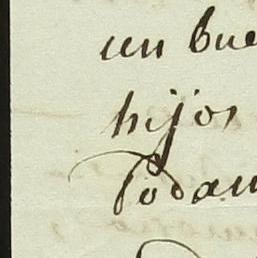 un bue
hijos
Podam